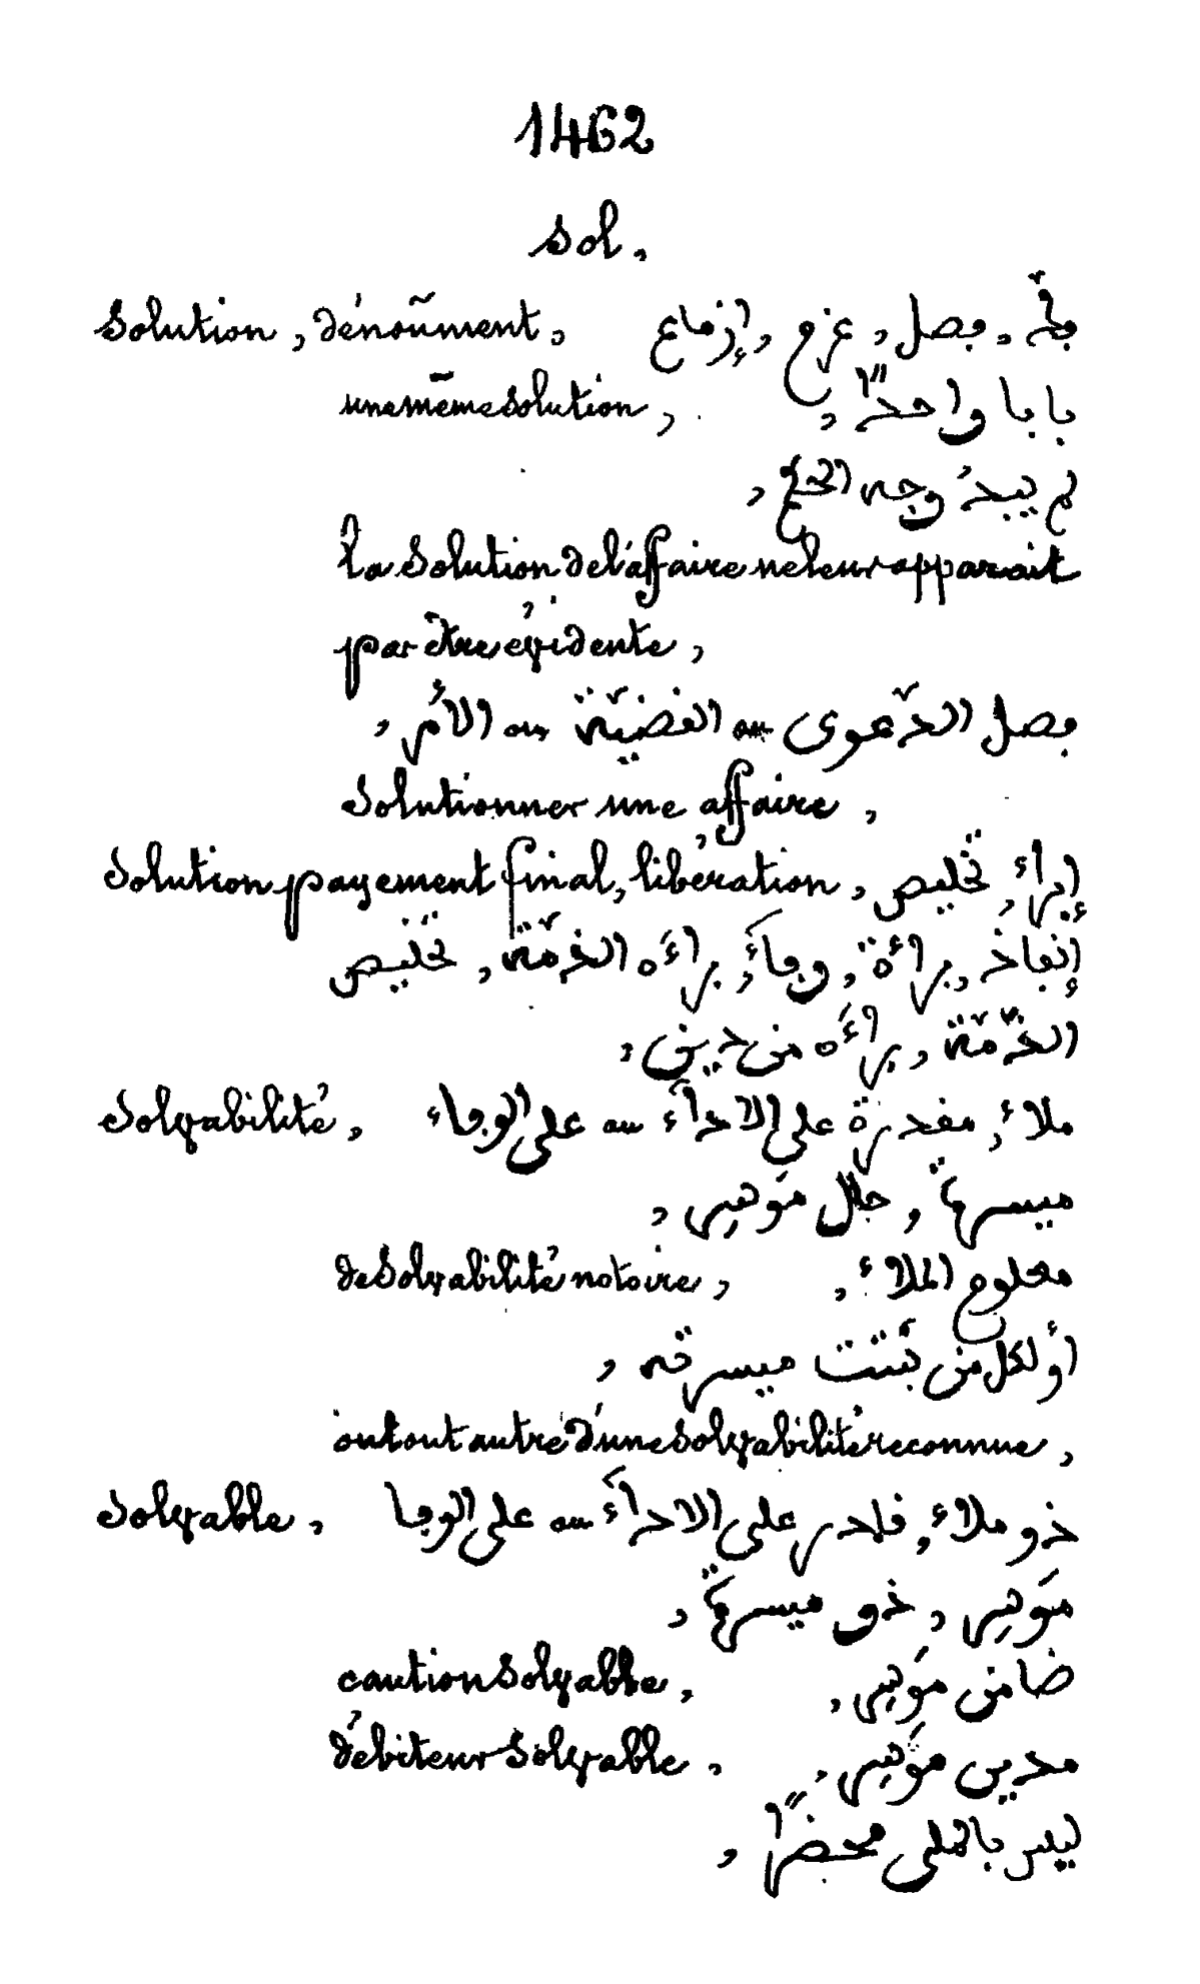 1462
sol.
Solution, dénoûment, فصل, عزم, إزماع
une même solution, بابا واحدًا,
لم يبدُ وجه
la solution de l'affaire ne leur apparait
par être évidente,
فصل الدّعوى س القضيّة س الأمر,
Solutionner une affaire,
Solution payement final, libération, إبراء, تخليص
إنفاذ, براءة, وفاء, براءَه الذمّة, تخليص
الذّمّة, براءَه من دين,
Solvabilité, ملاء, مقدرة على الاداء س على الوفاء
حال
de Solvabilité notoire, معلوم الملاء,
أو لكل من ثبتت ميسرته,
ou tout autre d'une solvabilité reconnue,
Solvable, ذو ملاء, قادر على الاداء س على الوفا
ذو
caution Solvable, ضامن
débiteur Solvable, مدين
ليس محضًا,